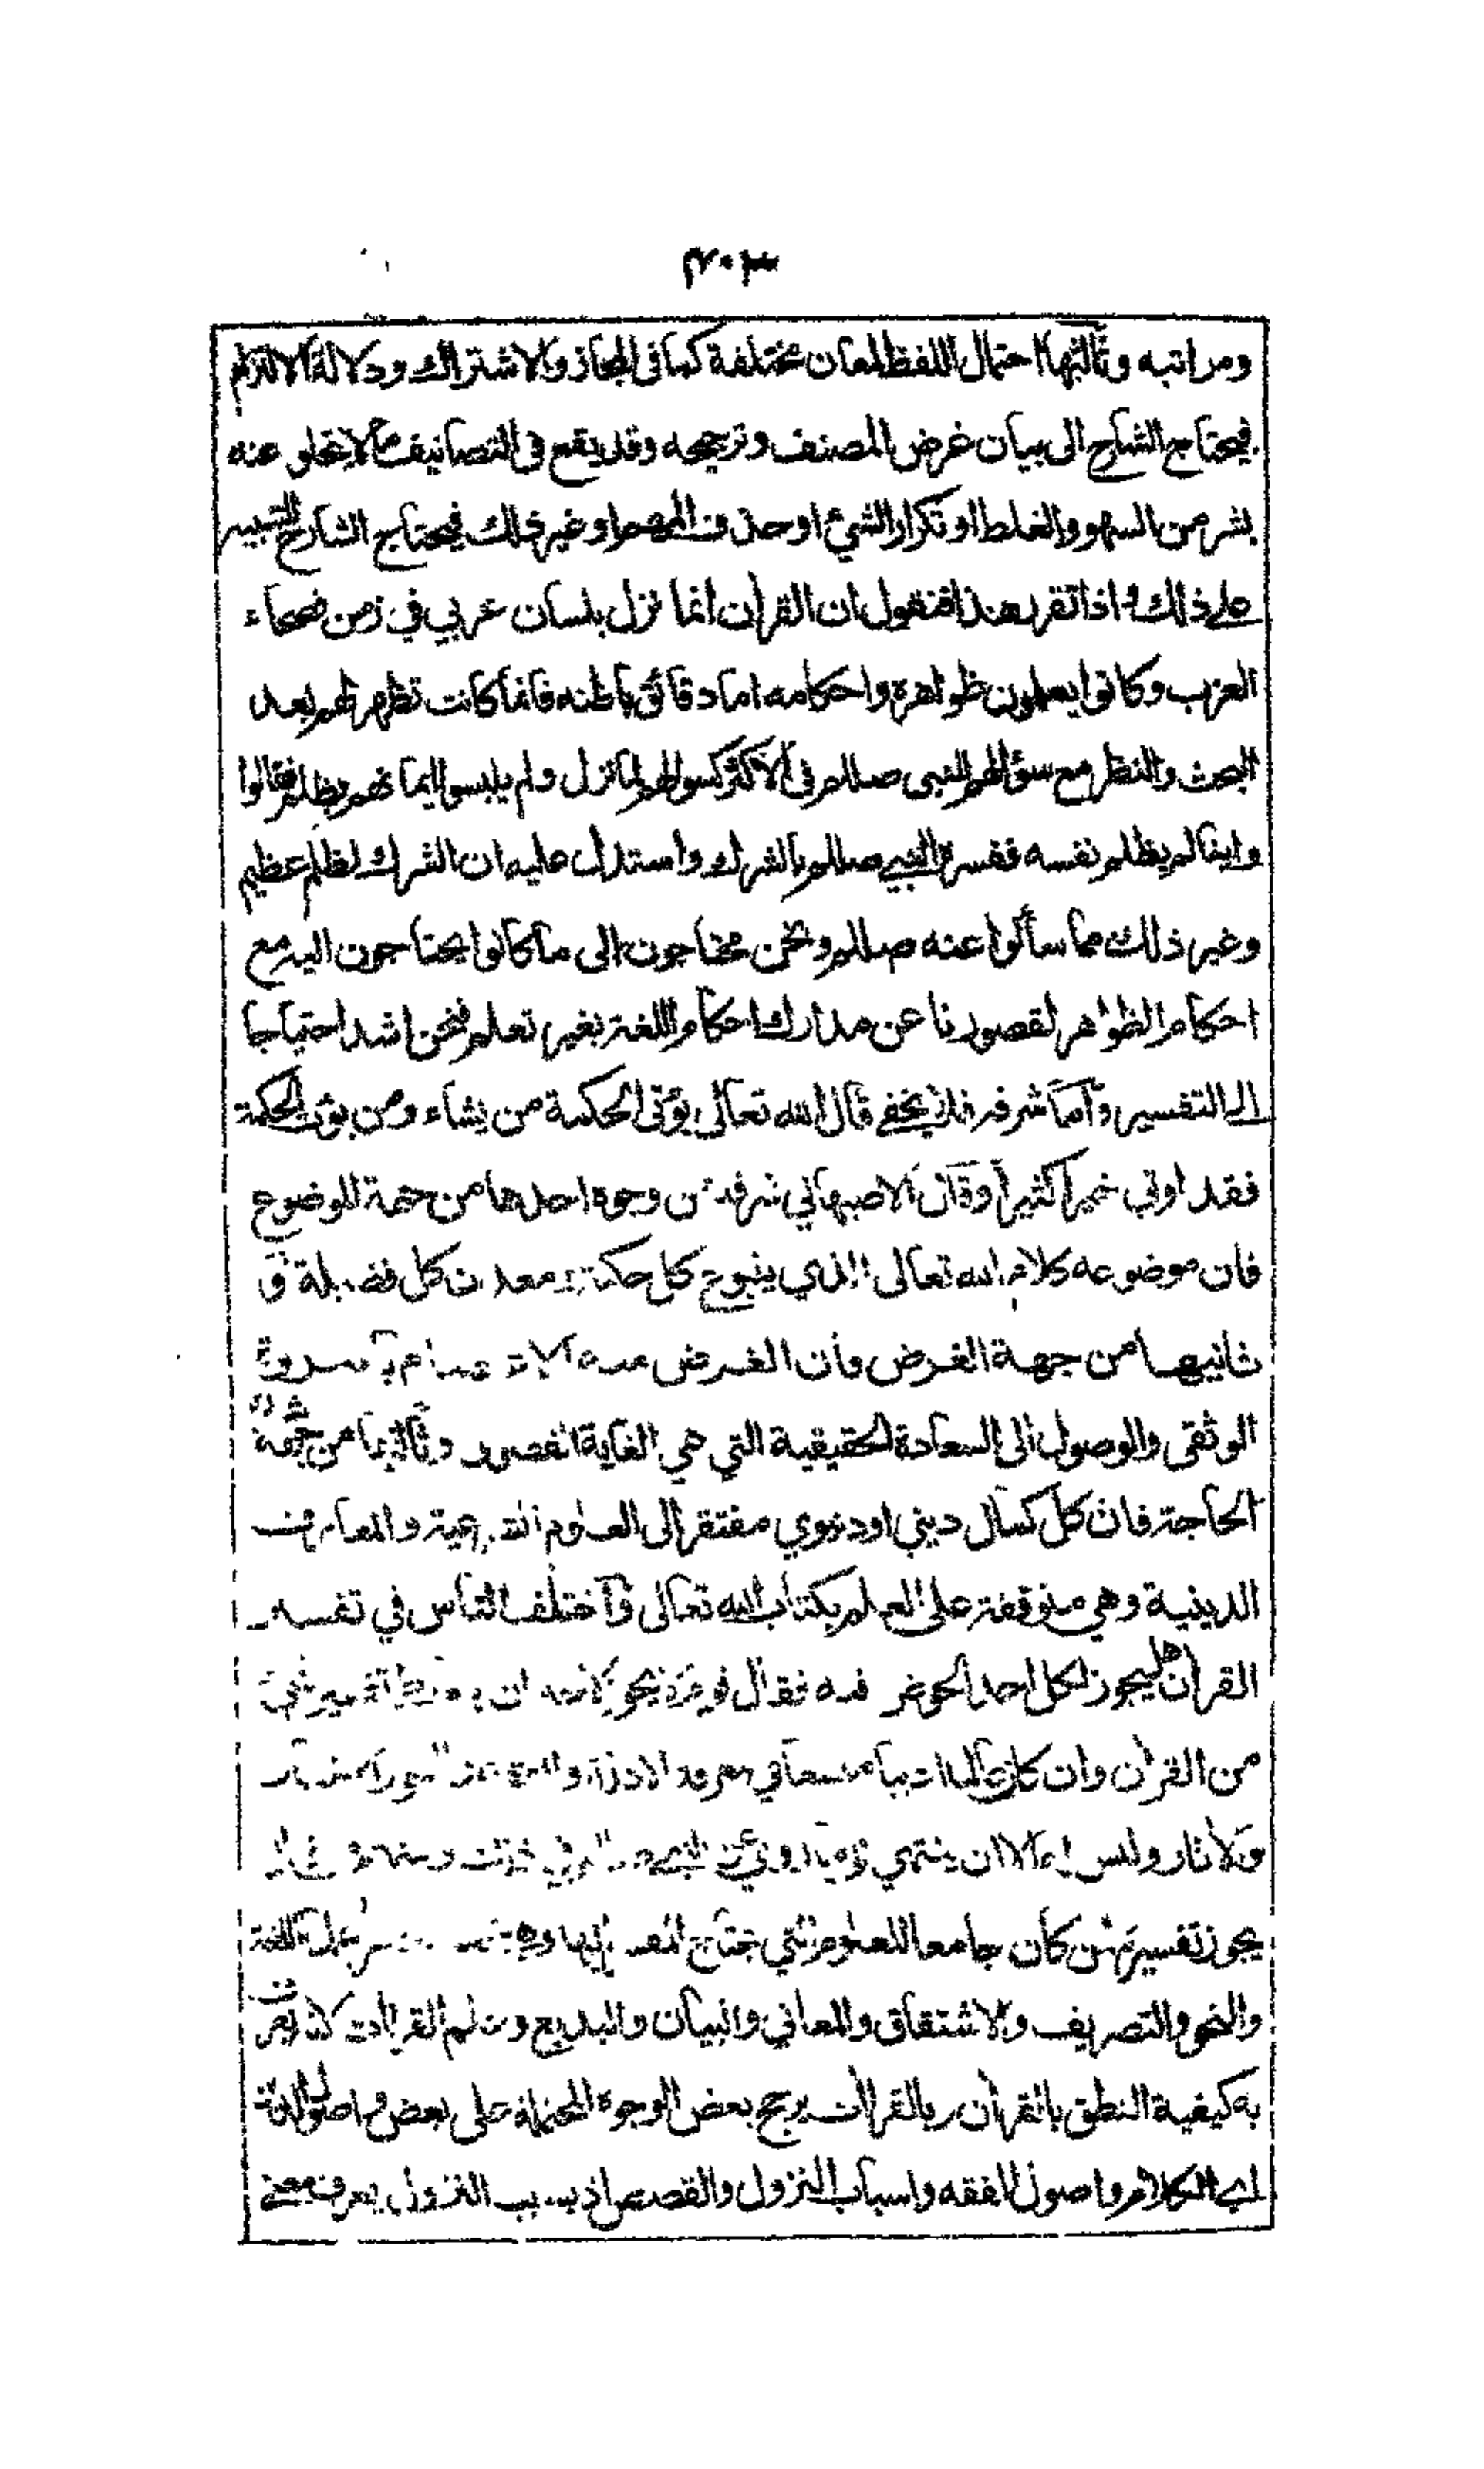 ٣٠٣
ومراتبه وثالثها احتمال اللفظ لمعان مختلفة كما فى المجاز والاشتراك ودلالة الالتزام
فيحتاج الشارح الى بيان غرض المصنف وترجيحه وقد يقع فى التصانيف ما لا يخلو عنه
بشر من السهو والغلط او تكرار الشيء او حذف المهم او غير ذلك فيحتاج الشارح التنبيه
على ذلك واذا تقرر هذا فنقول ان القرآن انما نزل بلسان عربي في زمن فصحاء
العرب وكانوا يعلمون ظواهره واحكامه اما دقائق باطنه فانما كانت تظهر لهم بعد
البحث والنظر مع سؤالهم النبى صللم فى الاكثر كسؤالهم لما نزل ولم يلبسوا ايمانهم بظلم فقالوا
واينا لم يظلم نفسه ففسره النبي صللم بالشرك واستدل عليه ان الشرك لظلم عظيم
وغير ذلك مما سألوا عنه صللم ونحن محتاجون الى ما كانوا يحتاجون اليه مع
احكام الظواهر لقصورنا عن مدارك احكام اللغة بغير تعلم فنحن اشد احتياجا
الى التفسير واما شرفه فلا يخفى قال الله تعالى يؤتى الحكمة من يشاء ومن يؤت الحكمة
فقد اوتي خيرا كثيرا وقال الاصبهاني شرفه من وجوه احدها من جهة الموضوع
فان موضوعه كلام الله تعالى الذي ينبوع كل حكمة ومعدن كل فضيلة و
ثانيها من جهة الغرض فان الغرض منه الاعتصام بالعروة
الوثقى والوصول الى السعادة الحقيقية التي هي الغاية القصوى وثالثها من جهة شدة
الحاجة فان كل كمال ديني او دنيوي مفتقر الى العلوم الشرعية والمعارف
الدينية وهي متوقفة على العلم بكتاب الله تعالى واختلف الناس في تفسير
القرآن هل يجوز لكل احد الخوض فيه فقال قوم لا يجوز لاحد ان تفسير شيء
من القرآن وان كان عالما اديبا متسعا في معرفة الادلة والفقه والنحو والاخبار
والآثار وليس له الا ان ينتهي الى ما روي عن النبي صللم في ذلك ومنهم من قال
يجوز تفسيره لمن كان جامعا للعلوم التي يحتاج المفسر اليها وهي خمسة عشر علما اللغة
والنحو والتصريف والاشتقاق والمعاني والبيان والبديع وعلم القراءات لانه يعرف
به كيفية النطق بالقرآن وبالقراءات يرجح بعض الوجوه المحتملة على بعض واصول الدين
اي الكلام واصول الفقه واسباب النزول والقصص اذ بسبب النزول يعرف معنى